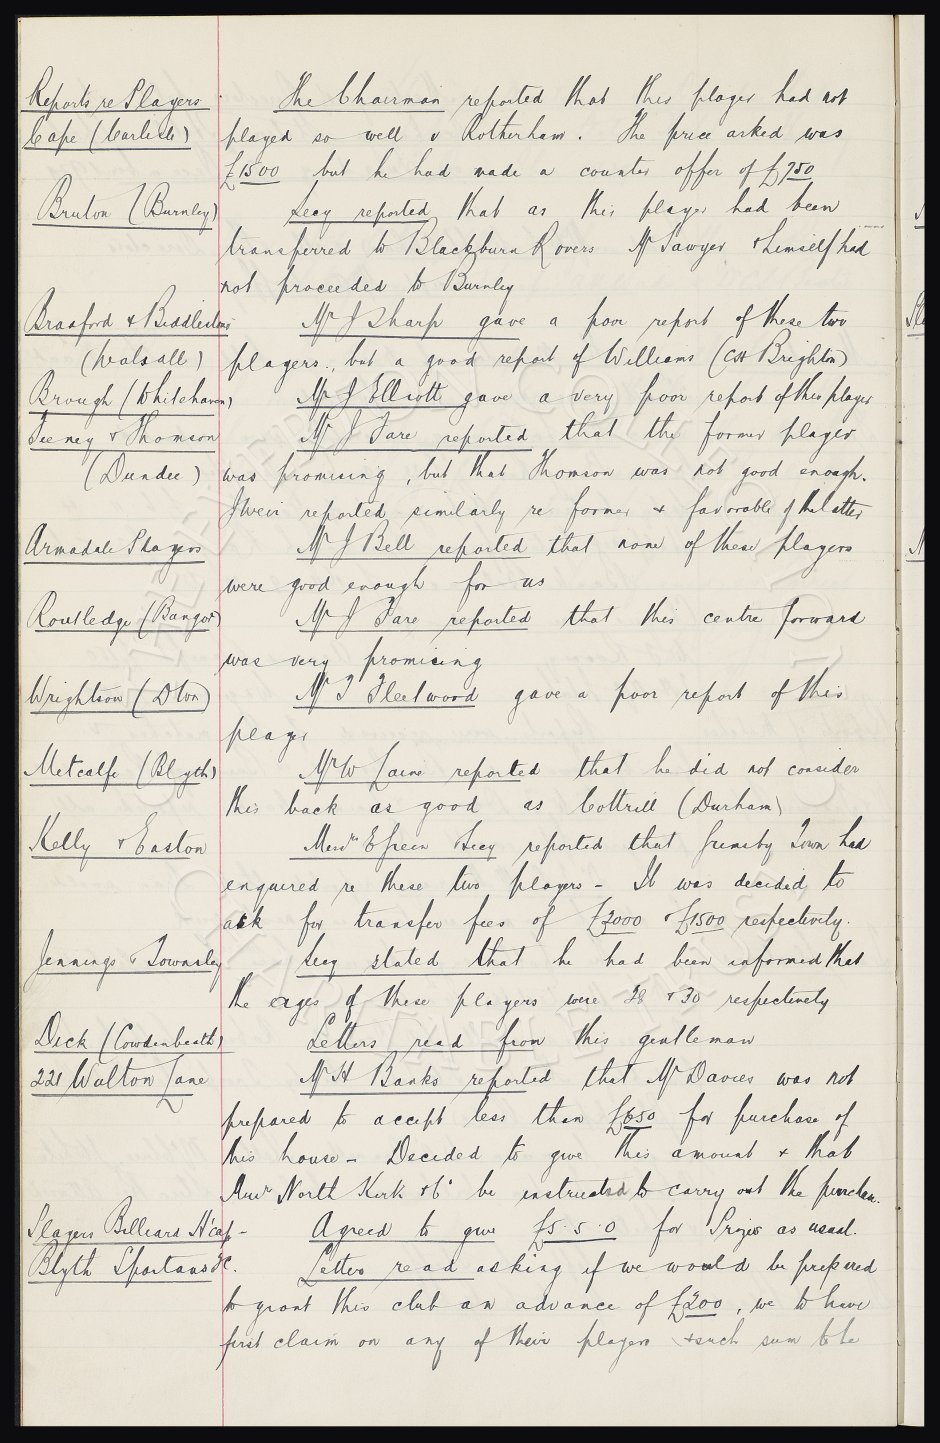 Reports re Players
The Chairman reported that this player had not
Cape (Carlisle)
played so well v Rotherham. The price asked was
£1500 but he had made a counter offer of £750
Bruton (Burnley)
Secy reported that as this player had been
transferred to Blackburn Rovers Mr Sawyer & himself had
not proceeded to Burnley
Bradford & Biddlestone
Mr J Sharp gave a poor report of these two
(Walsall)
players., but a good report of Williams (CH Brighton)
Brough (Whitehaven)
Mr J Elliott gave a very poor report of this player
Feeney & Thomson
Mr J Fare reported that the former player
(Dundee)
was promising, but that Thomson was not good enough.
J Weir reported similarly re former & favorable of the latter
Armadale Players
Mr J Bell reported that none of these players
were good enough for us
Routledge (Bangor)
Mr J Fare reported that this centre forward
was very promising
Wrightson (Dton)
Mr T Fleetwood gave a poor report of this
player
Metcalfe (Blyth)
Mr W Laine reported that he did not consider
this back as good as Cottrill (Durham)
Kelly & Easton
Secy reported that Grimsby Town had
enquired re these two players - It was decided to
ask for transfer fees of £2000 & £1500 respectively.
Jennings & Townsley
Secy stated that he had been informed that
the ages of these players were 28 & 30 respectively
Dick (Cowdenbeath)
Letters read from this gentleman
221 Walton Lane
Mr H Banks reported that Mr Davies was not
prepared to accept less than £650 for purchase of
this house - Decided to give this amount & that
Messrs North Kirk & Co be instructed to carry out the purchase.
Players Billiard H'cap -
Agreed to give £5.5.0 for Prizes as usual.
Blyth Spartans FC.
Letter read asking if we would be prepared
to grant this club an advance of £200, we to have
first claim on any of their players & such sum to be